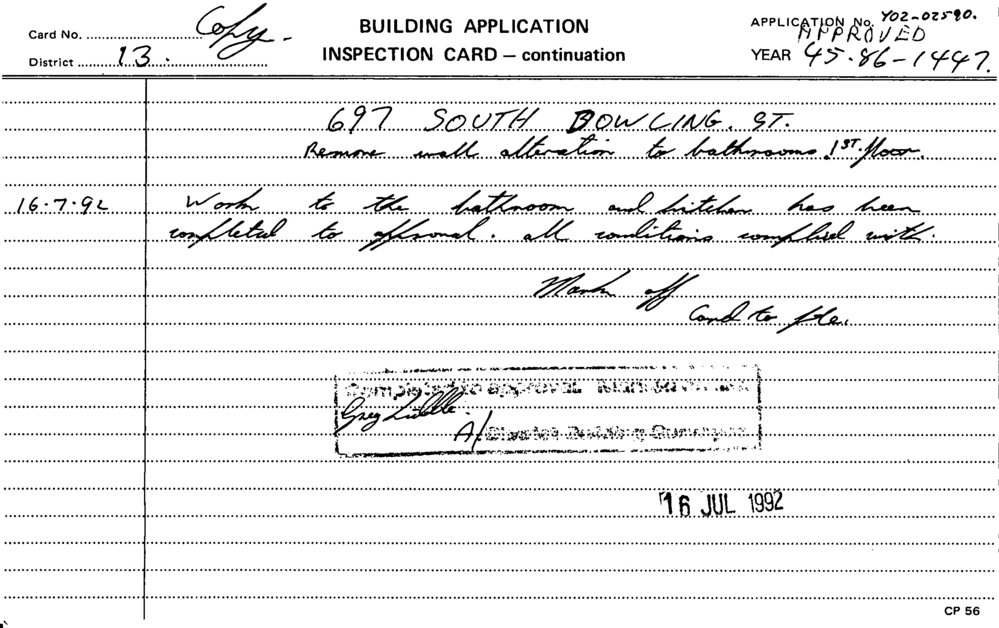 Card No. Copy.
District 13.
BUILDING APPLICATION
INSPECTION CARD – continuation
APPLICATION No. Y02-02590.
APPROVED
YEAR 45-86-1447.
697 SOUTH BOWLING. ST.
Remove wall alteration to bathrooms 1ST. floor.
16.7.92 Work to the bathroom and kitchen has been
completed to approval. all conditions complied with.
Mark off
Card to file.
Completed to approval
Greg
A/ District Building Surveyor
16 JUL 1992
CP 56